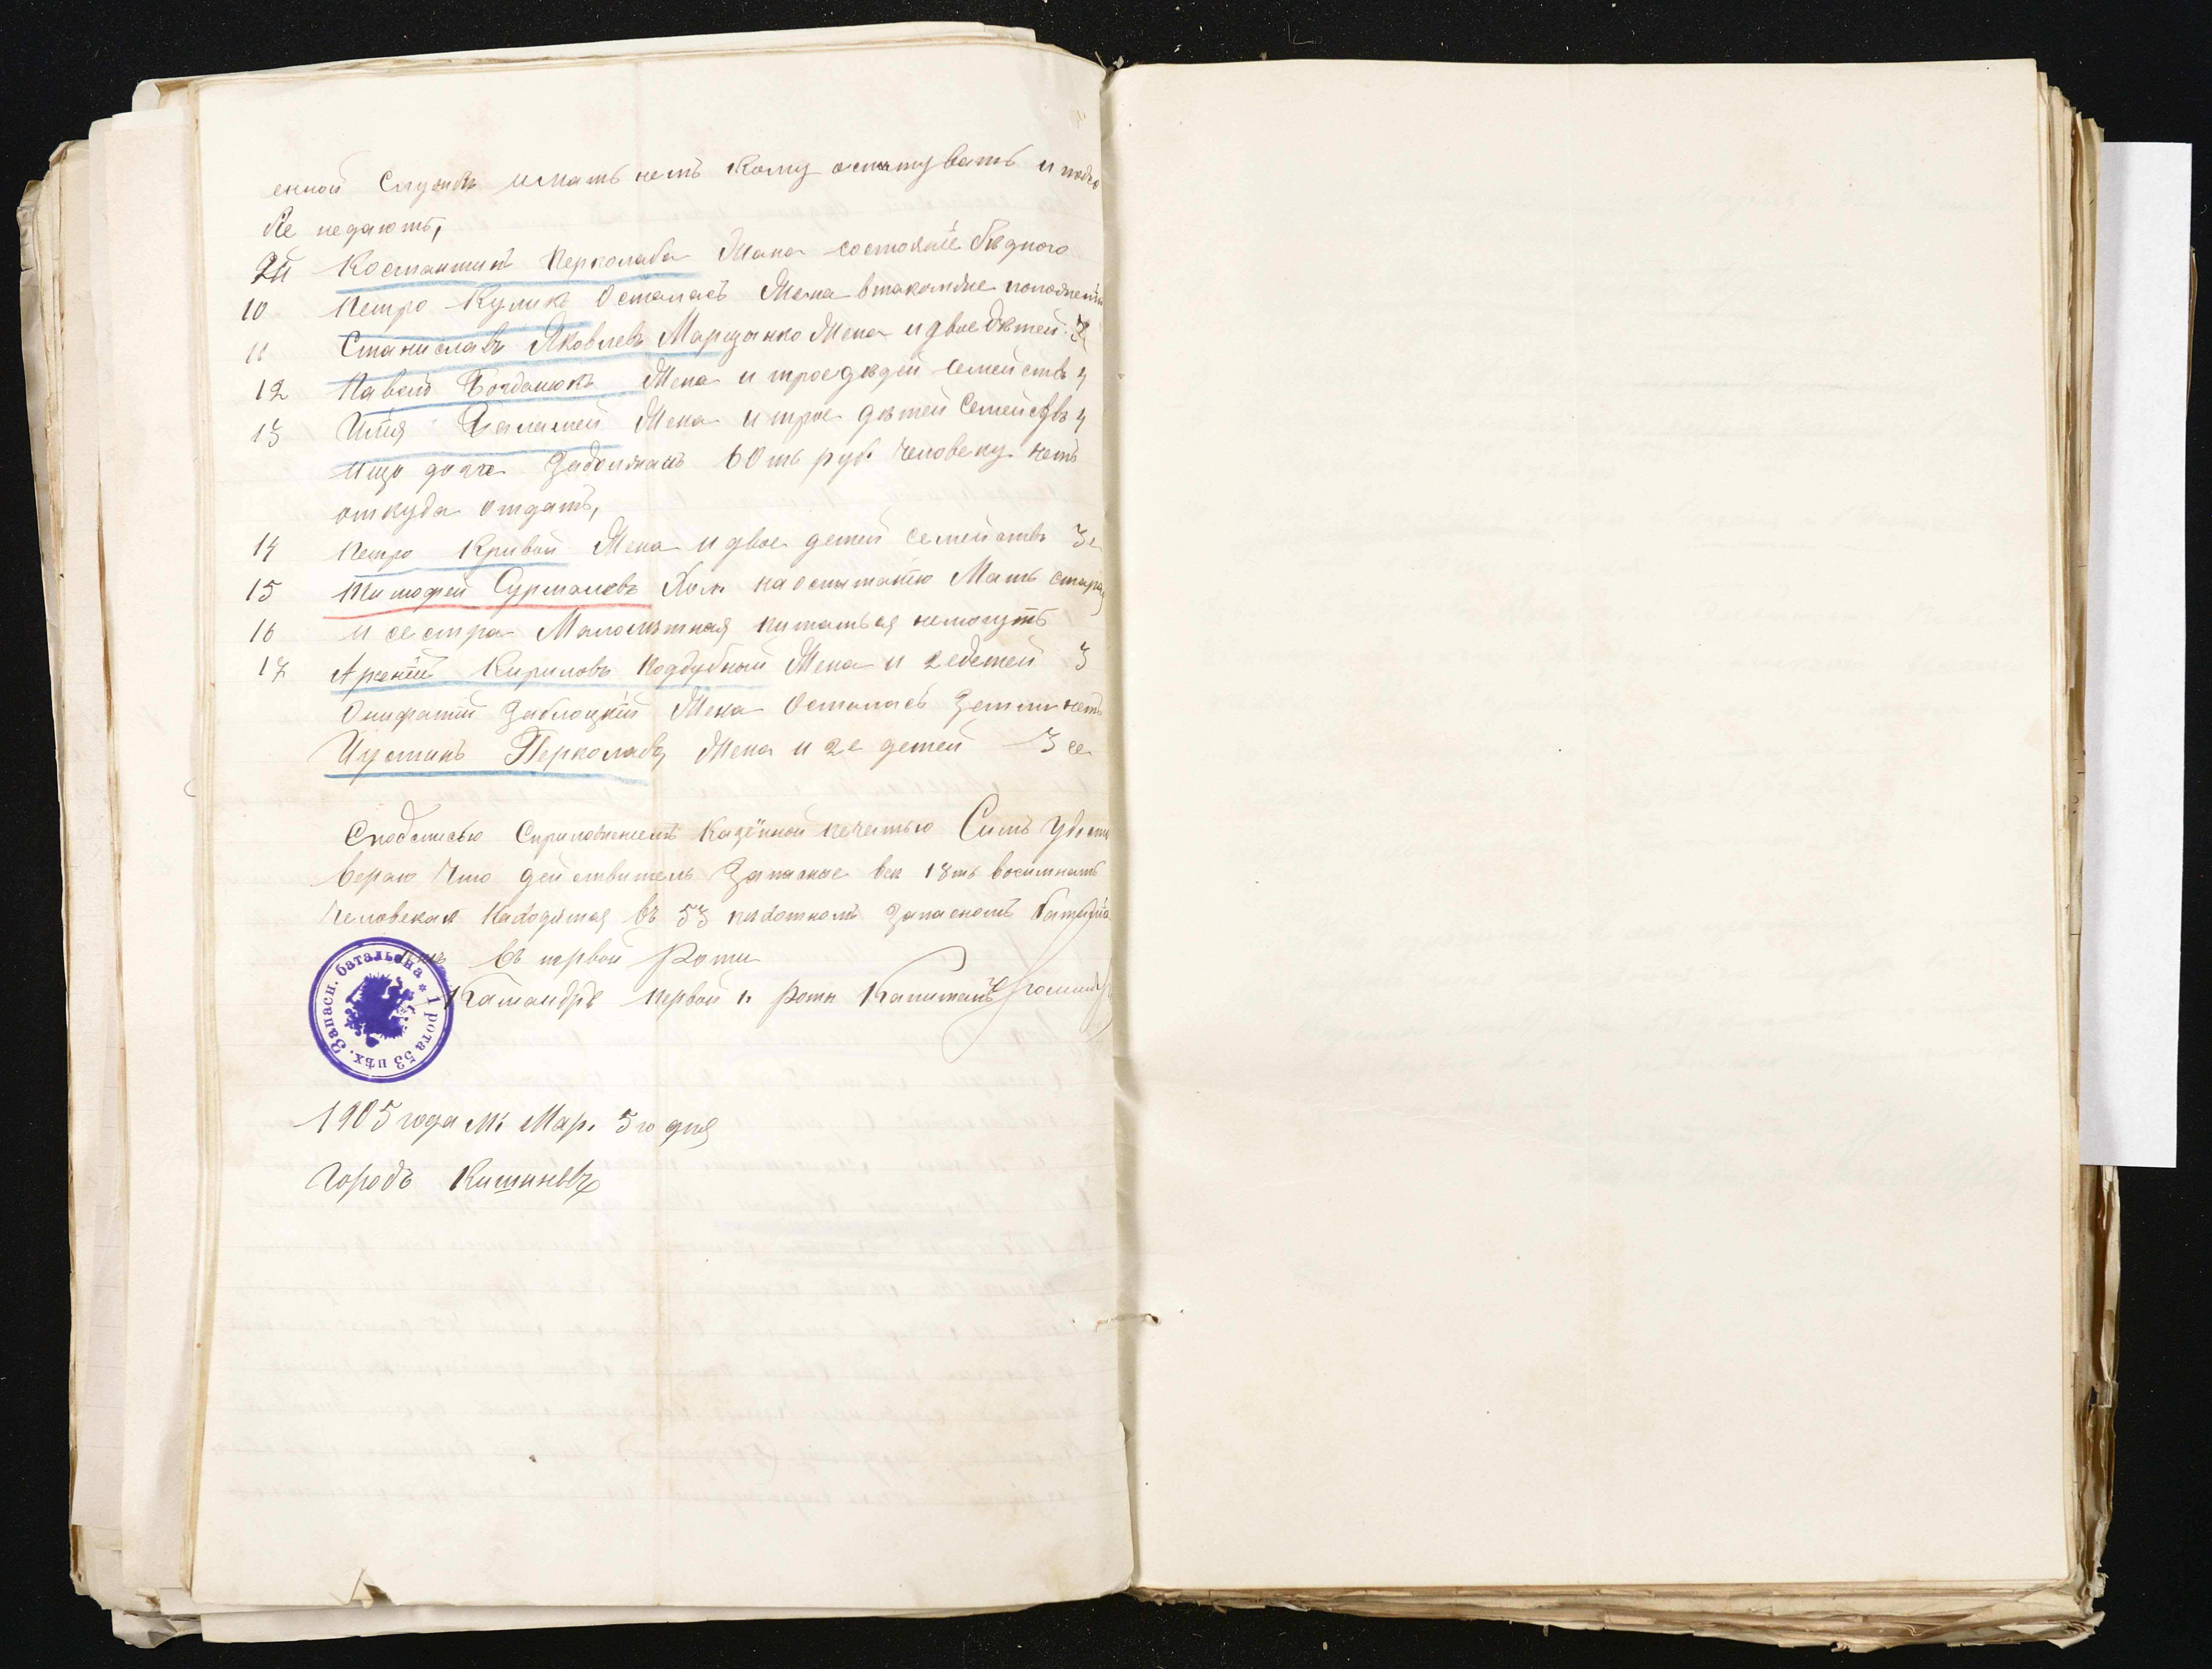 енной Службѣ имать нетъ Кому оспитувать и
не недаютъ,
9й Костантинъ Перколаба Жана состояніе бѣдного
10 Петро Куликъ Осталась Жена втакомже положеніи
11 Станиславъ Яковлевъ Марцинко Жена и двое дѣтей 3
12 Павелъ Богданюкъ Жена и трое дѣдей семейств 4
13 Илія Баламей Жена и трое дѣтей Семейств 4
ищо долгъ Задолжалъ 60ть руб. Человеку нетъ
откуда отдать,
14 Петро Кривой Жена и двое детей семействъ 3е
15 Тимофей Сурмалевъ Хол. на оспытанію Мать стара
16 и сестра Малолѣтная питаться немогутъ
17 Арсентій Кириловъ Поддубный Жена и 2е детей 3
Онифатій Заблоцкій Жена Осталась Земли нетъ
Иустинъ Перколабъ Жена и 2е детей 3 се
Сподписью Сприложеніемъ Казённой печетью Симъ удосто
веряю что действитель Запасные все 18ть восимнать
человекая находятся въ 53 пихотномъ запасномъ
въ первой Роти
Камандръ первой Роти Капитанъ
1 рота 53 пѣх. Запасн. батальона *
1905 года М. Мар. 5го дня
Городъ Кишиневъ